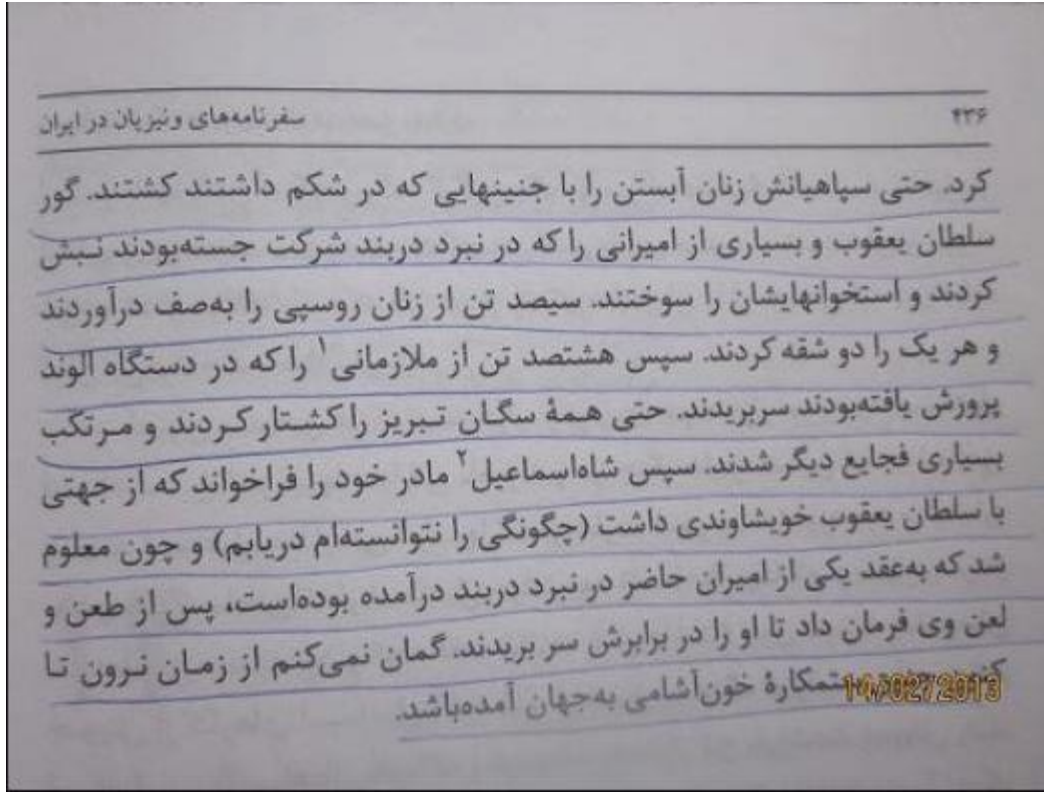 ۴۳۶ سفرنامه‌های ونیزیان در ایران
کرد. حتی سپاهیانش زنان آبستن را با جنینهایی که در شکم داشتند کشتند. گور
سلطان یعقوب و بسیاری از امیرانی را که در نبرد دربند شرکت جسته‌بودند نبش
کردند و استخوانهایشان را سوختند. سیصد تن از زنان روسپی را به‌صف درآوردند
و هر یک را دو شقه کردند. سپس هشتصد تن از ملازمانی۱ را که در دستگاه الوند
پرورش یافته‌بودند سربریدند. حتی همهٔ سگان تبریز را کشتار کردند و مرتکب
بسیاری فجایع دیگر شدند. سپس شاه‌اسماعیل۲ مادر خود را فراخواند که از جهتی
با سلطان یعقوب خویشاوندی داشت (چگونگی را نتوانسته‌ام دریابم) و چون معلوم
شد که به‌عقد یکی از امیران حاضر در نبرد دربند درآمده بوده‌است، پس از طعن و
لعن وی فرمان داد تا او را در برابرش سر بریدند. گمان نمی‌کنم از زمان نرون تا
خون‌آشامی به‌جهان آمده‌باشد.
14/02/2013